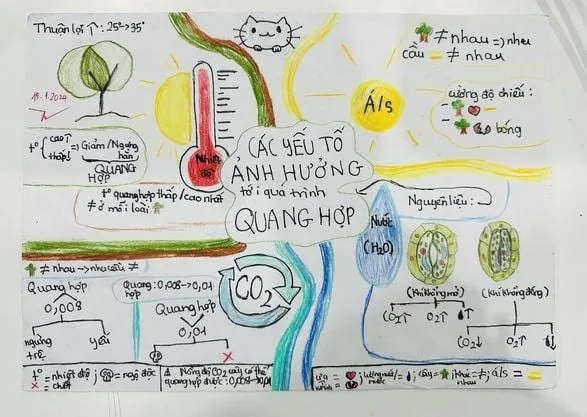 Thuận lợi ↑ : 25° → 35°
19.1.2024
t° { cao↑ thấp↓ => Giảm / Ngừng hẳn
QUANG HỢP
t° quang hợp thấp / cao nhất
≠ ở mỗi loài
Nhiệt độ
CÁC YẾU TỐ
ẢNH HƯỞNG
tới quá trình
QUANG HỢP
Á/s
≠ nhau => nhu
cầu ≠ nhau
cường độ chiếu :
bóng
Nguyên liệu :
Nước
(H₂O)
(Khí khổng mở)
(Khí khổng đóng)
CO₂↑ O₂↑ ↑
CO₂↓ O₂↓ ↓
CO₂
≠ nhau → nhu cầu ≠
Quang hợp
0,008
ngừng trệ
yếu
Quang hợp : 0,008 → 0,01
Quang hợp
0,01
X
t° = nhiệt độ ; = ngộ độc
X = chết
Nồng độ CO₂ cây có thể
quang hợp được : 0,008 → 0,01
ưa = ; lượng nước = ; cây = ; khác nhau = ≠ ; á/s =